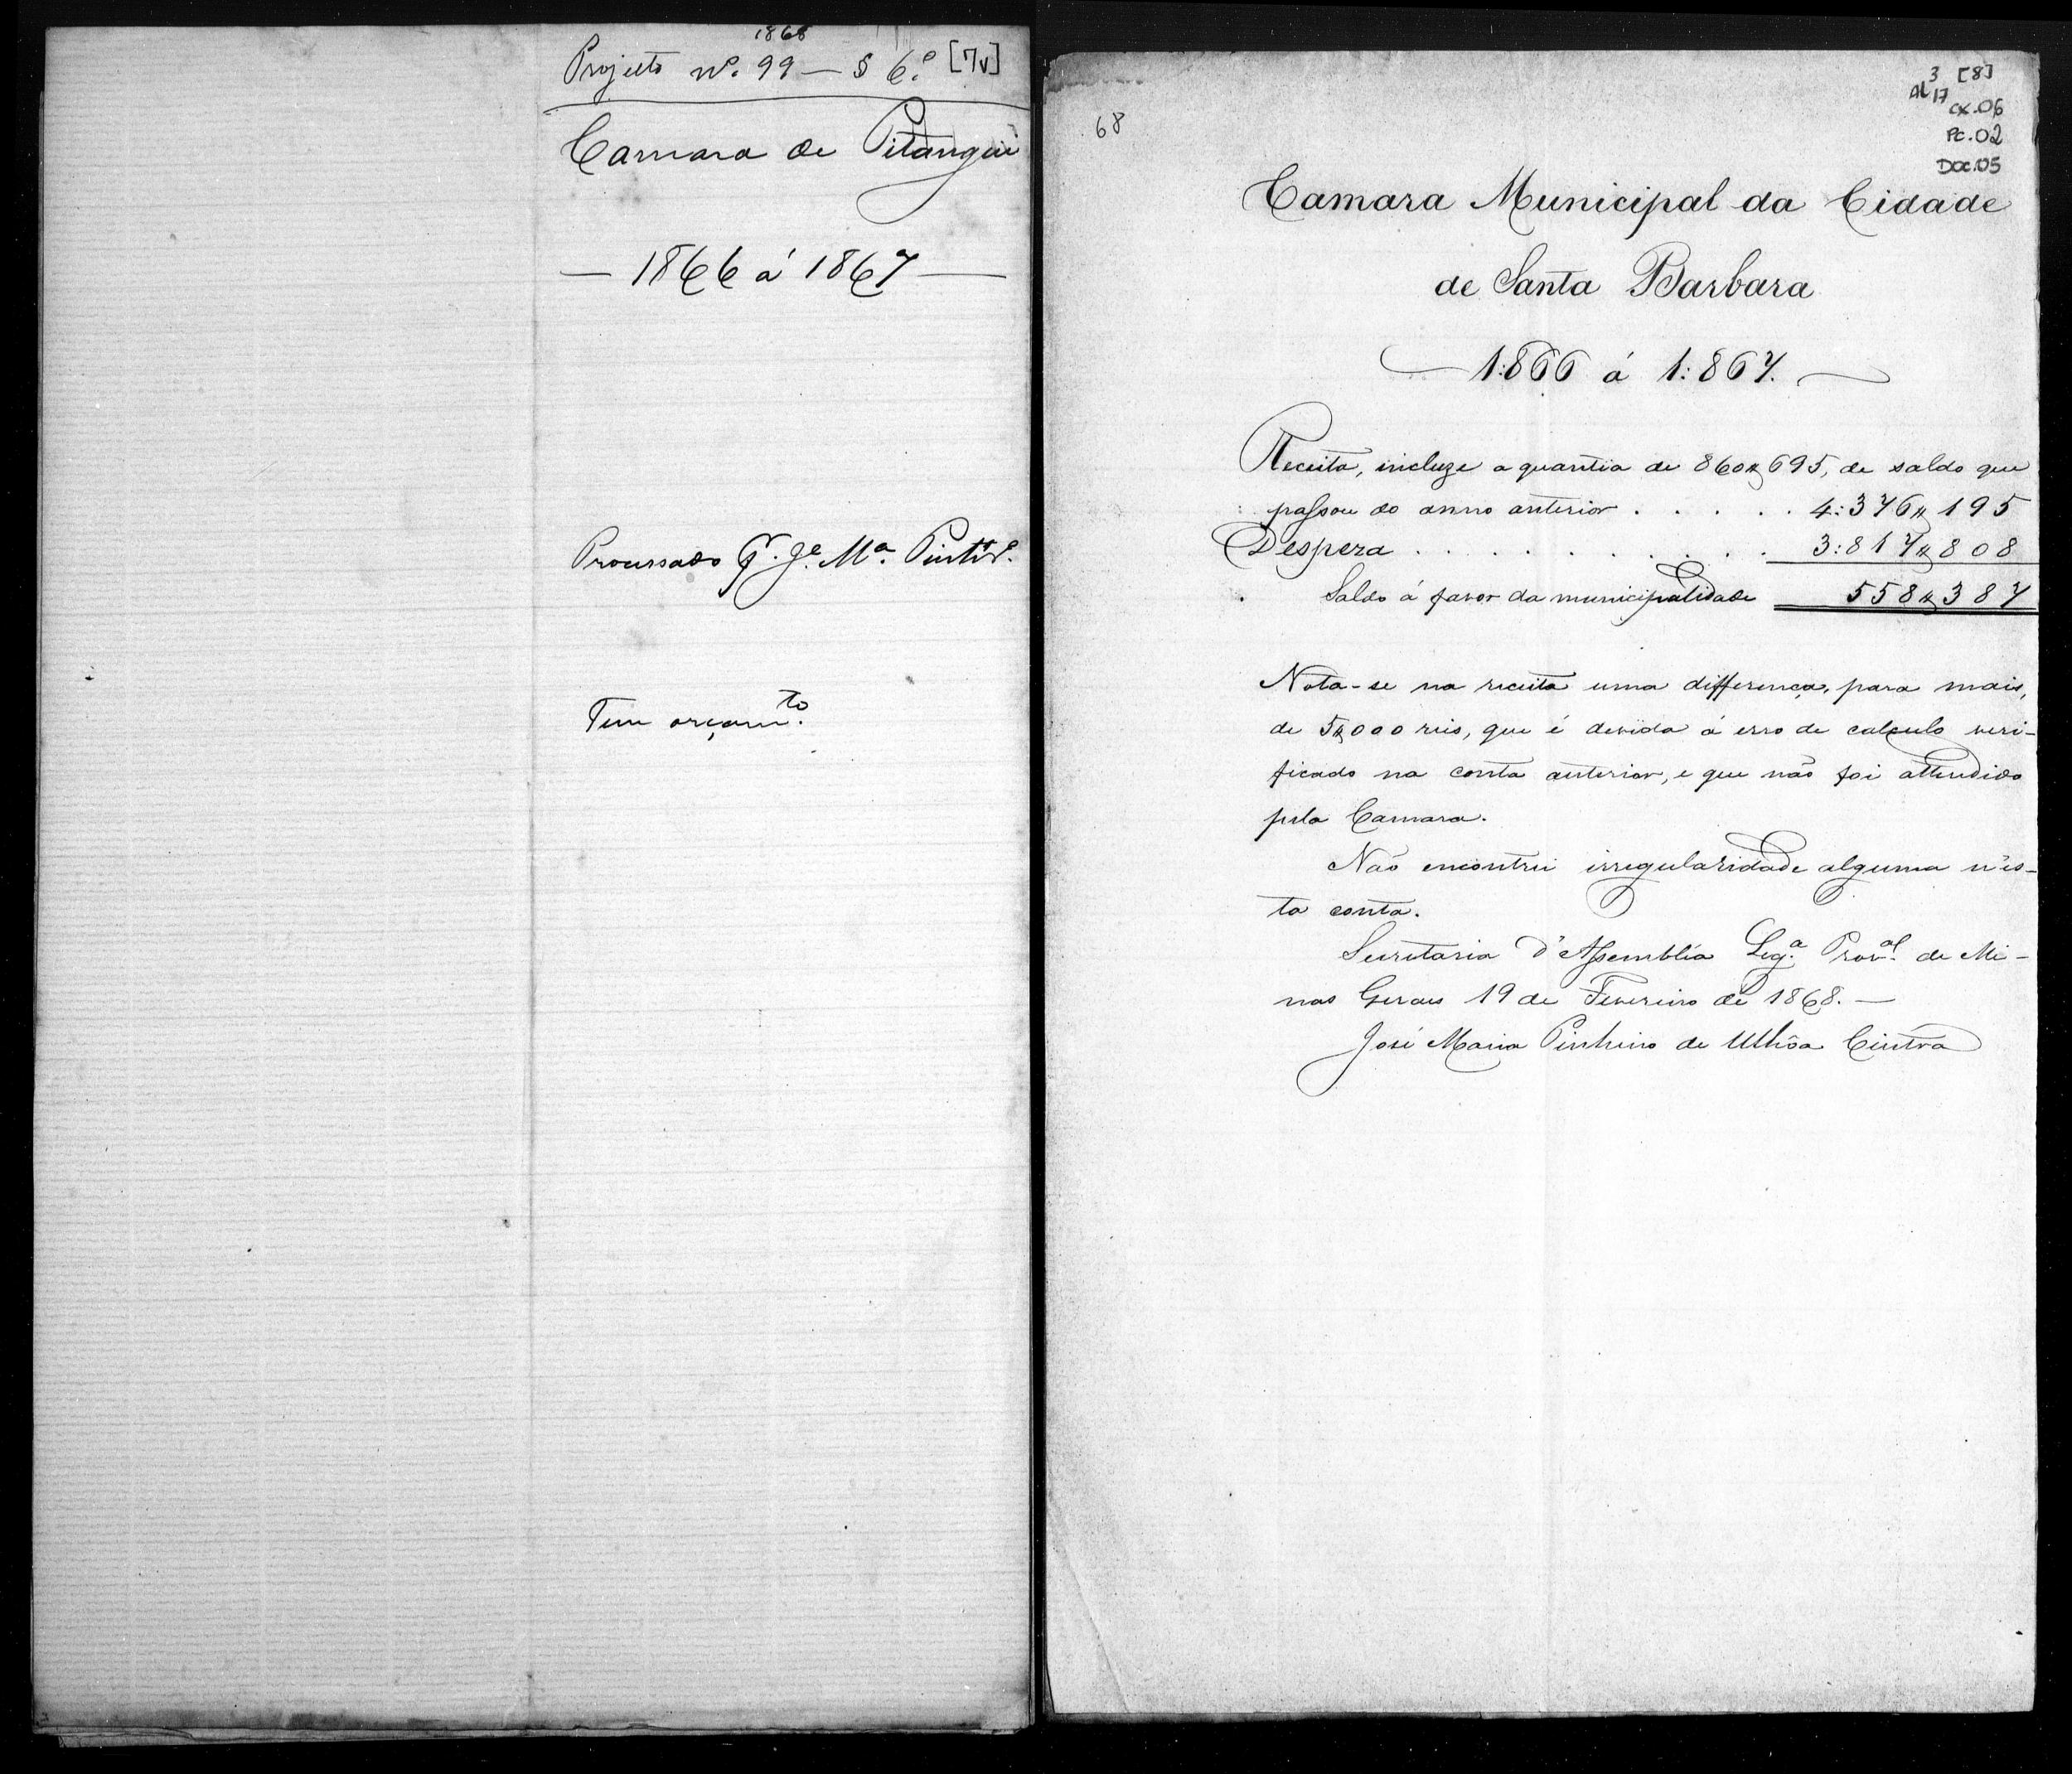 1868
Projecto nº. 99 — § 6.º [7v]
Camara de Pitangui
— 1866 á 1867 —
Processado Jº. Mª.
Tem orçamto.
3 [8]
AL 17
cx.06
Pc.02
Doc.05
68
Camara Municipal da Cidade
de Santa Barbara
— 1:866 á 1:867. —
Receita, incluze a quantia de 860$695, de saldo que
passou do anno anterior . . . . . 4:376$195
Despeza . . . . . . . . . . 3:817$808
Saldo á favor da municipalidade 558$387
Nota-se na receita uma differença, para mais,
de 5$000 reis, que é devida á erro de calculo veri-
ficado na conta anterior, e que não foi attendido
pela Camara.
Não encontrei irregularidade alguma n'es-
ta conta.
Secretaria d'Assembléa Lega. Proval. de Mi-
nas Geraes 19 de Fevereiro de 1868. —
José Maria Pinheiro de Ulhôa Cintra